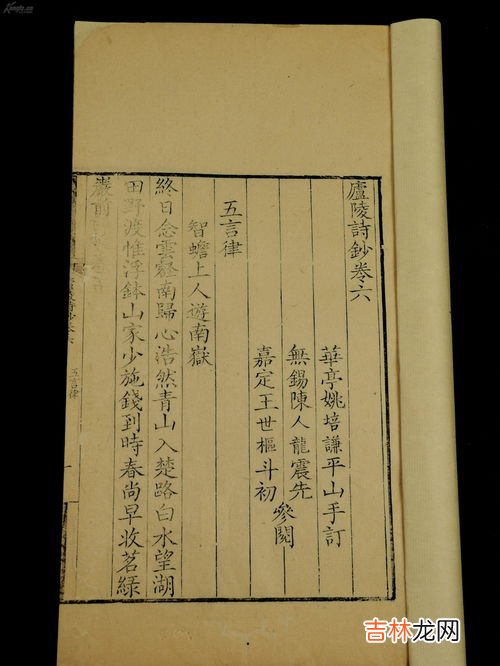 廬陵詩鈔卷六
華亭姚培謙平山手訂
無錫陳人龍震先
嘉定王世樞斗初
參閱
五言律
智蟾上人遊南嶽
終日念雲壑南歸心浩然青山入楚路白水望湖
田野渡惟浮鉢山家少施錢到時春尚早收茗綠
巖前
五言律
吉林龙网